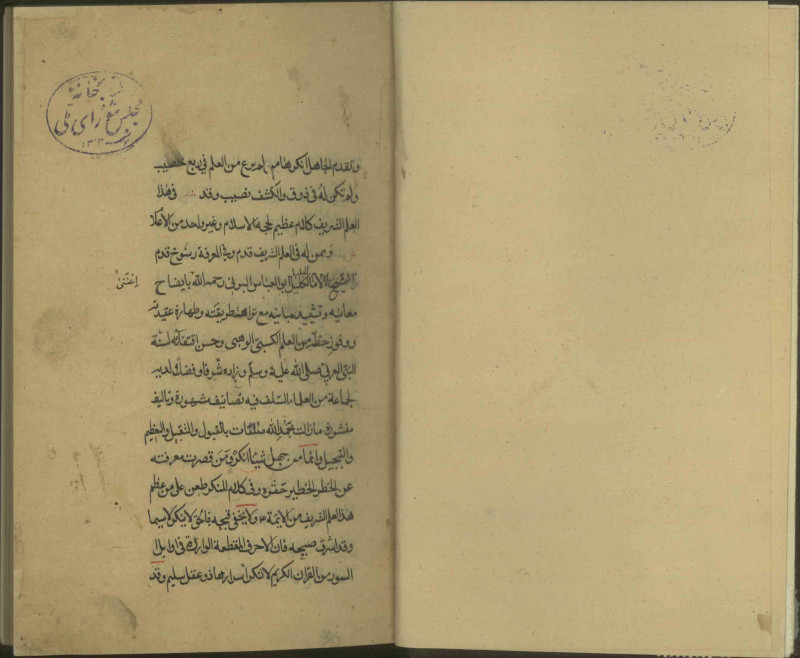 كتابخانه
مجلس شورای ملی
١٣٠٢
وتقدم الجاهل انكر هنا من لم يرع من العلم في ربع خصيب
ولم تكن له في ذوق والكشف نصيب وقد في هذا
العلم الشريف كلام عظيم لحجة الاسلام وغير واحد من الأعلا
وممن له في العلم الشريف قدم وفي المعرفة رسوخ قدم
الشيخ الامام ابو العباس البوني رحمه الله بايضاح
اعتنى
معانيه وتشييد مبانيه مع نزاهة طريقته وطهارة عقيدته
ووفور حظه من العلم الكسبي الوهبي وحسن اقتفائه لسنة
النبي العربي صلى الله عليه وسلم وزاده شرفا وفضلا لديه
لجماعة من العلماء السلف فيه تصانيف مشهورة وتاليف
منشورة مازالت بحمد الله متلقات بالقبول والتنقيل والتعظيم
والتبجيل وانما من جهل شيئا انكره ومن قصرت معرفته
عن الخطر الخطير حقره وفي كلام المنكر طعن على من عظم
هذا العلم الشريف من الائمة ولا يخفى قبحه فالحق لا ينكر لاسيما
وقد اشرق صبحه فان الاحرف المقطعة الواردة في اوايل
السور من القران الكريم لا تنكر اسرارها ذو عقل سليم وقد